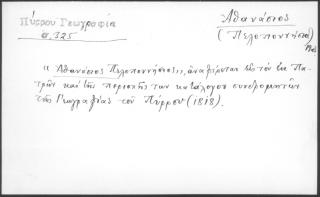 Πύρρου Γεωγραφία
σ. 325
Ἀθανάσιος
(Πελοποννήσιος)
« Ἀθανάσιος Πελοποννήσιος», ἀναφέρεται εἰς τὸν ἐκ Πα-
τρῶν καὶ τῆς περιοχῆς των κατάλογον συνδρομητῶν
τῆς Γεωγραφίας τοῦ Πύρρου (1818).